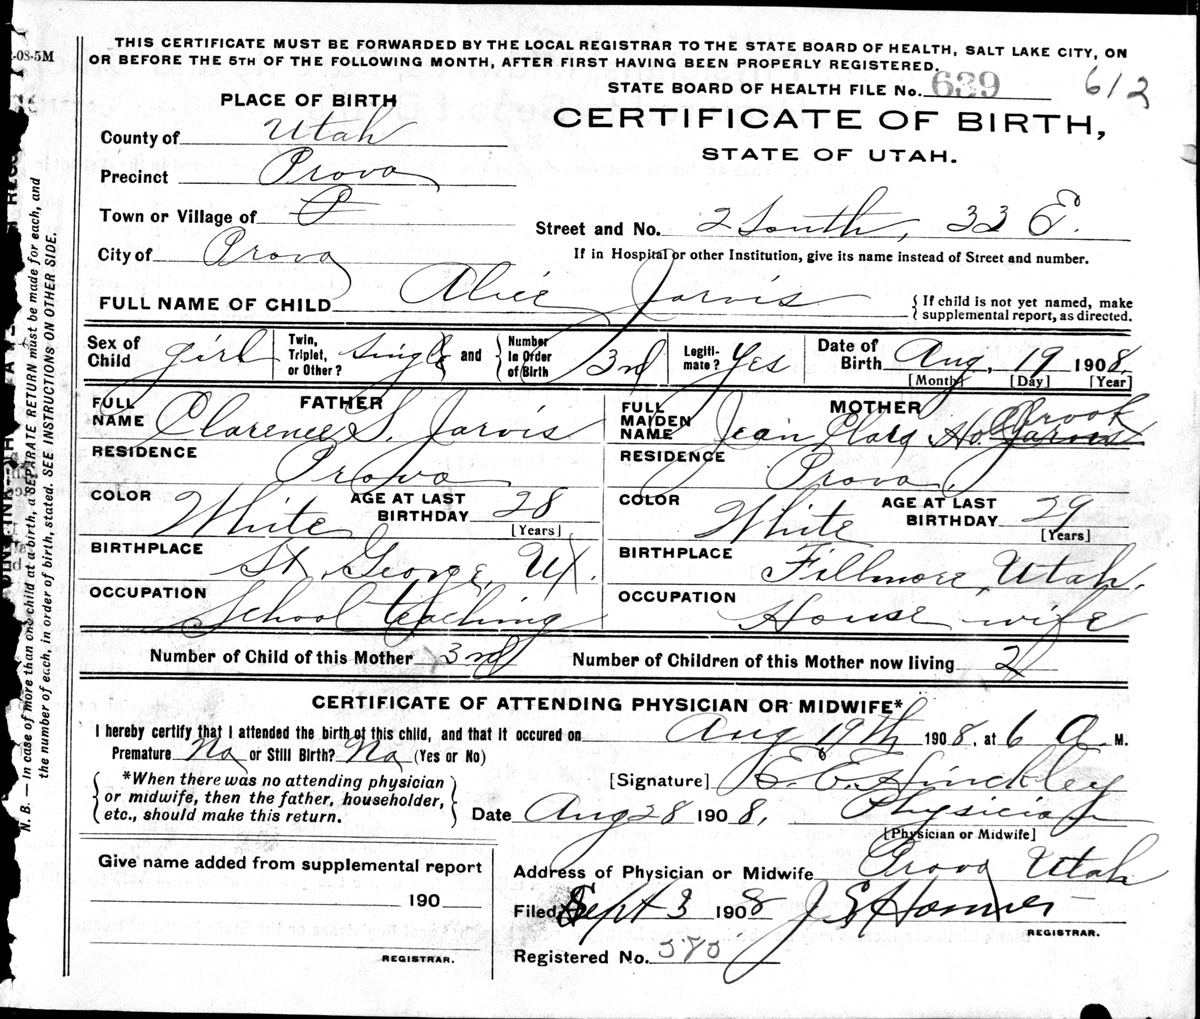 2-08-5M
THIS CERTIFICATE MUST BE FORWARDED BY THE LOCAL REGISTRAR TO THE STATE BOARD OF HEALTH, SALT LAKE CITY, ON
OR BEFORE THE 5TH OF THE FOLLOWING MONTH, AFTER FIRST HAVING BEEN PROPERLY REGISTERED.
STATE BOARD OF HEALTH FILE No. 639 612
PLACE OF BIRTH
CERTIFICATE OF BIRTH,
STATE OF UTAH.
County of Utah
Precinct Provo
Town or Village of P
Street and No. 2 South, 33 E.
City of Provo
If in Hospital or other Institution, give its name instead of Street and number.
FULL NAME OF CHILD Alice Jarvis
{ If child is not yet named, make
supplemental report, as directed.
Sex of Child girl
Twin, Triplet, or Other? single and Number in Order of Birth 3rd
Legiti-mate? Yes
Date of Birth Aug, 19 1908.
[Month] [Day] [Year]
FATHER
FULL NAME Clarence S. Jarvis
RESIDENCE Provo
COLOR White
AGE AT LAST BIRTHDAY 28
[Years]
BIRTHPLACE St. George, Ut.
OCCUPATION School teaching
MOTHER
FULL MAIDEN NAME Jean Clara Holbrook
RESIDENCE Provo,
COLOR White
AGE AT LAST BIRTHDAY 29
[Years]
BIRTHPLACE Fillmore, Utah.
OCCUPATION House wife
Number of Child of this Mother 3rd
Number of Children of this Mother now living 2
CERTIFICATE OF ATTENDING PHYSICIAN OR MIDWIFE*
I hereby certify that I attended the birth of this child, and that it occured on Aug 19th, 1908, at 6 A. M.
Premature No or Still Birth? No (Yes or No)
*When there was no attending physician
or midwife, then the father, householder,
etc., should make this return.
[Signature] E. E. Hinckley
Date Aug 28 1908, Physician
[Physician or Midwife]
Address of Physician or Midwife Provo Utah
Filed Sept 3 1908
REGISTRAR.
Registered No.
Give name added from supplemental report
190
REGISTRAR.
N. B. — In case of more than one child at a birth, a SEPARATE RETURN must be made for each, and
the number of each, in order of birth, stated. SEE INSTRUCTIONS ON OTHER SIDE.